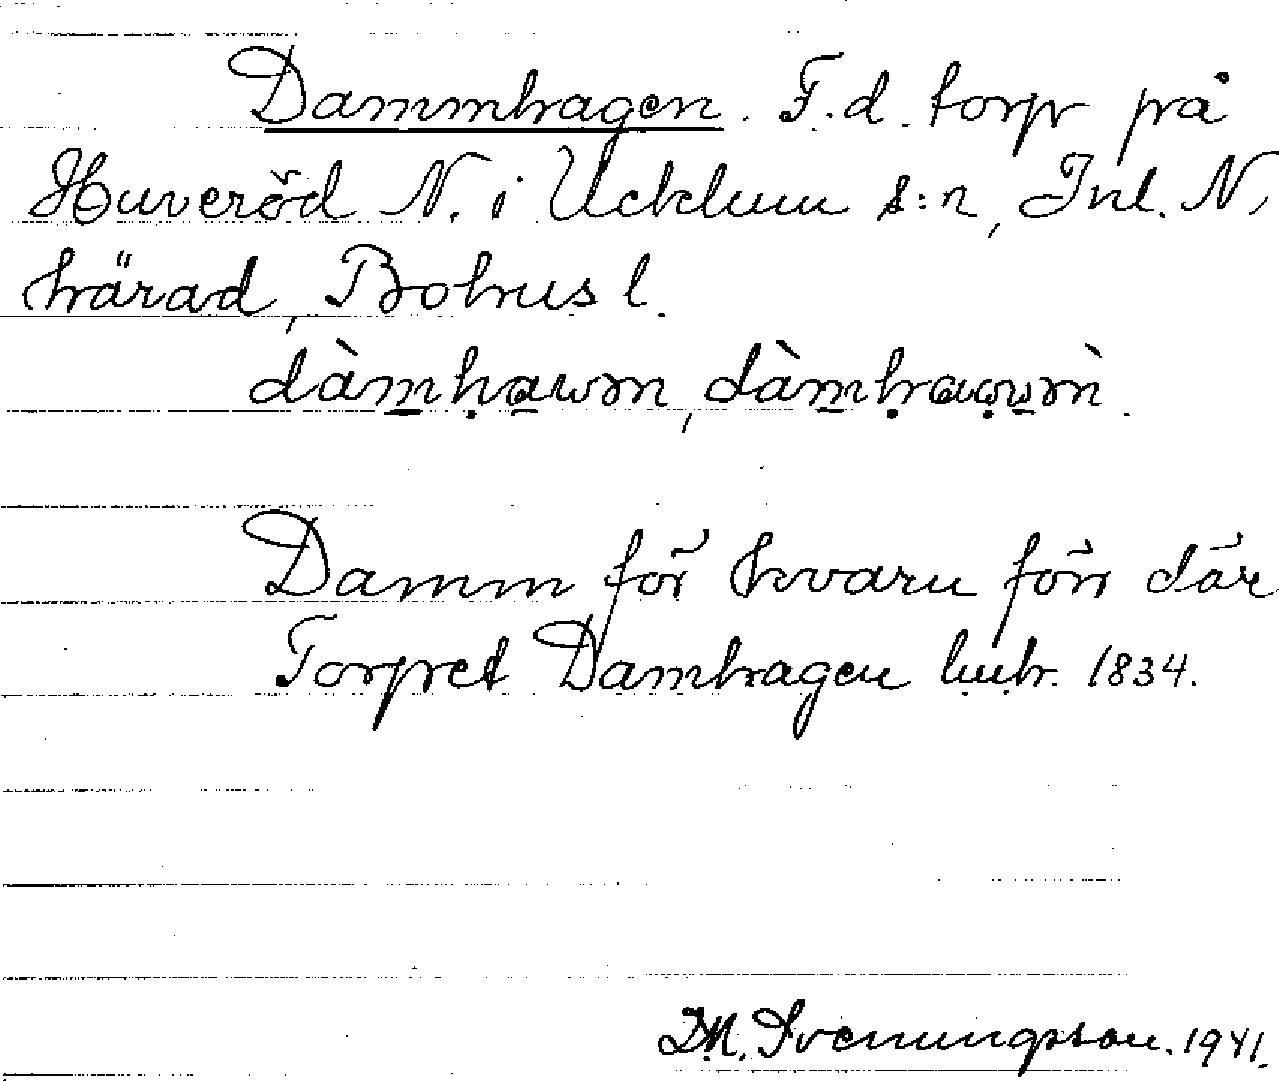 Dammhagen. F.d. torp på
Huveröd N. i Ucklum s:n, Inl. N.
härad, Bohus l.
Damm för kvarn förr där
Torpret Damhagen 1834.
D.M. Svenungsson. 1941.